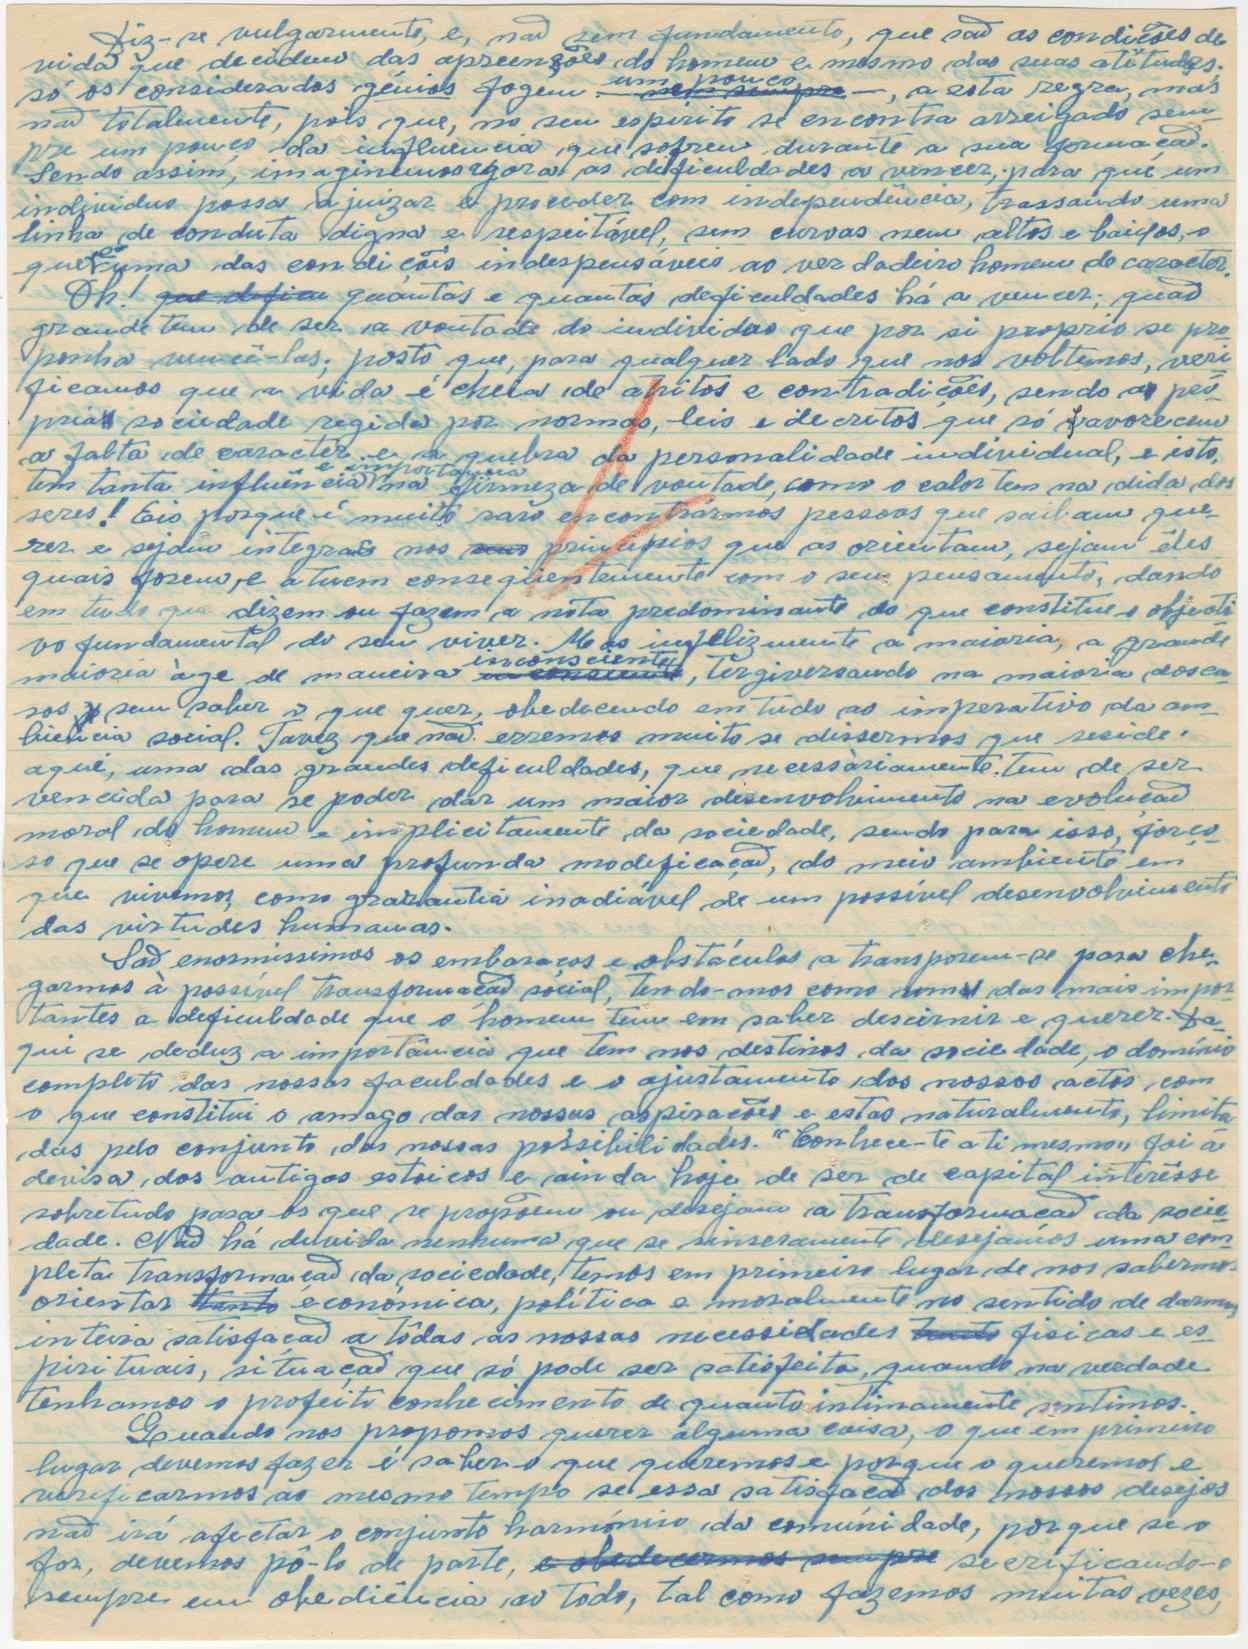 Diz-se vulgarmente, e, não sem fundamento, que são as condições de
vida que decidem das apreensões do homem e mesmo das suas atitudes.
só os considerados génios fogem um pouco nem sempre —, a esta regra, mas
não totalmente, pois que, no seu espirito se encontra arreigado sem-
pre um pouco da influencia que sofreu durante a sua formação.
Sendo assim, imaginemos agora as deficuldades a vencer, para que um
individuo possa ajuizar e proceder com independência, trassando uma
linha de conduta digna e respeitável, sem curvas nem altos e baixos, o
que é uma das condições indespensáveis ao verdadeiro homem de caracter.
Oh! que defícu quántas e quantas deficuldades há a vencer; quão
grande tem de ser a vontade do individuo que por si proprio se pro
ponha vencê-las; posto que, para qualquer lado que nos voltemos, veri
ficamos que a vida é cheia de atritos e contradições, sendo a pró
pria sociedade regida por normas, leis e decretos que só favorecem
a falta de caracter e a quebra da personalidade individual, e isto,
tem tanta influência e importancia na firmeza de vontade, como o calor tem na dida dos
seres! Eis porque é muito raro encontrármos pessoas que saibam que-
rer e sejam integras nos seus principios que as orientam, sejam êles
quais forem, e atuem conseqüentemente com o seu pensamento, dando
em tudo que dizem ou fazem a nota predominante do que constitue o objecti
vo fundamental do seu viver. Mas infelizmente a maioria, a grande
maioria àge de maneira inconsciente, tergiversando na maioria dos ca-
sos sem saber o que quer, obedecendo em tudo ao imperativo da am-
biência social. Tavez que não erremos muito se dissermos que reside
aqui, uma das grandes deficuldades, que necessàriamente tem de ser
vencida para se poder dar um maior desenvolvimento na evolução
moral do homem e implicitamente da sociedade, sendo para isso, forço-
so que se opere uma profunda modeficação, do meio ambiente em
que vivemos, como grarantia inadiável de um possível desenvolvimento
das virtudes humanas.
São enormissimos os embaraços e obstáculos a transporem-se para che-
garmos à possível transformação sócial, tendo-mos como uma das mais impor
tantes a deficuldade que o homem tem em saber descernir e querer. Da-
qui se deduz a importância que tem nos destinos da sociedade, o domínio
completo das nossas faculdades e o ajustamento dos nossos actos com
o que constitui o amago das nossas aspirações e estas naturalmente, limita
das pelo conjunto das nossas possibilidades. "Conhece-te a ti mesmo" foi a
devisa dos antigos estoicos e ainda hoje de ser de capital interêsse
sobretudo para os que se propõem ou desejam a transformação da socie-
dade. Não há duvida nenhuma que se sinseramente desejámos uma com
pleta transformação da sociedade, temos em primeiro lugar de nos sabermos
orientar tanto económica, política e moralmente no sentido de darmos
inteira satisfação a tôdas as nossas necessidades tanto fisicas e es-
pirituais, situação que só pode ser satisfeita, quando na verdade
tenhamos o profeito conhecimento de quanto intimamente sentimos.
Quando nos propomos querer alguma coisa, o que em primeiro
lugar devemos fazer é saber o que queremos e porque o queremos e
verificarmos ao mesmo tempo se essa satisfação dos nossos desejos
não irá afectar o conjunto harmónico da comúnidade, porque se o
for, devemos pô-lo de parte, e obedecermos sempre secrificando-o
sempre em obediência ao todo, tal como fazemos muitas vezes,